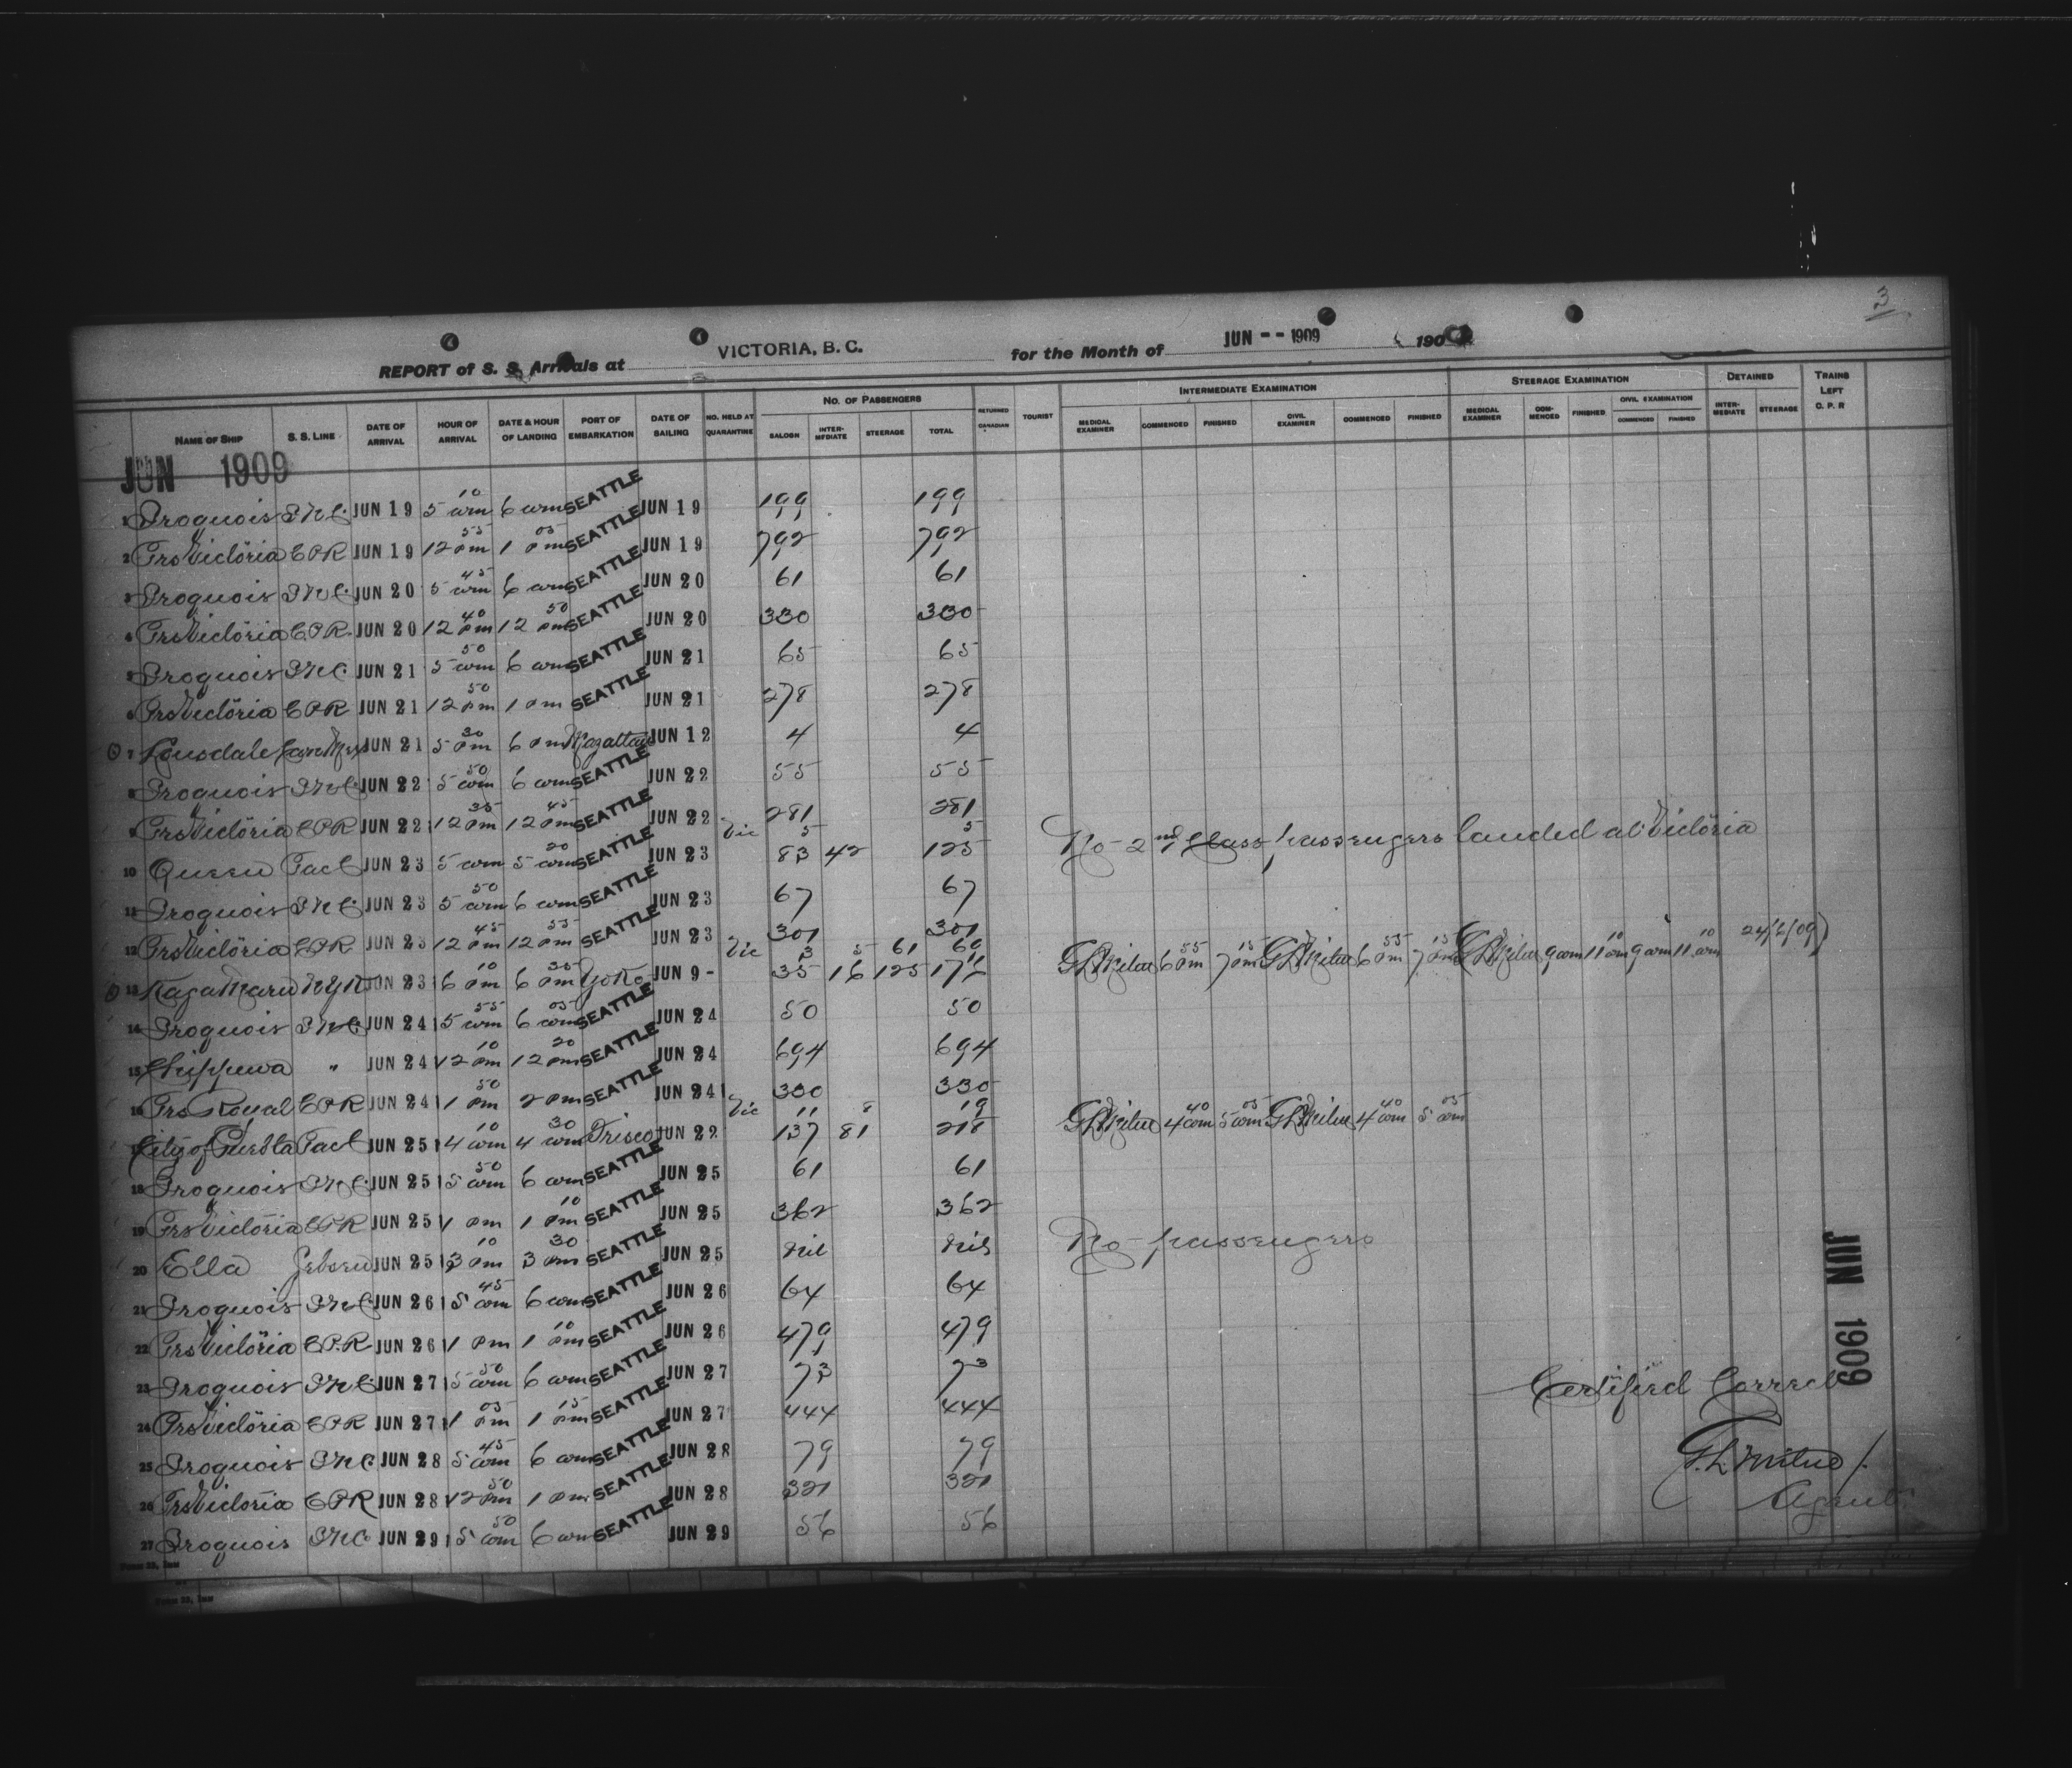 3
REPORT of S. S. Arrivals at VICTORIA, B. C. for the Month of JUN -- 1909 190
NAME OF SHIP S. S. LINE DATE OF ARRIVAL HOUR OF ARRIVAL DATE & HOUR OF LANDING PORT OF EMBARKATION DATE OF SAILING NO. HELD AT QUARANTINE NO. OF PASSENGERS SALOON INTERMEDIATE STEERAGE TOTAL RETURNED CANADIAN TOURIST INTERMEDIATE EXAMINATION MEDICAL EXAMINER COMMENCED FINISHED CIVIL EXAMINER COMMENCED FINISHED STEERAGE EXAMINATION MEDICAL EXAMINER COMMENCED FINISHED CIVIL EXAMINATION COMMENCED FINISHED DETAINED INTERMEDIATE STEERAGE TRAINS LEFT C. P. R
JUN 1909
1 Iroquois INC JUN 19 5 10 am 6 am SEATTLE JUN 19 199 199
2 Prs Victoria CPR JUN 19 12 55 pm 1 05 pm SEATTLE JUN 19 792 792
3 Iroquois INC JUN 20 5 45 am 6 am SEATTLE JUN 20 61 61
4 Prs Victoria CPR JUN 20 12 40 pm 12 50 pm SEATTLE JUN 20 330 330
5 Iroquois INC JUN 21 5 50 am 6 am SEATTLE JUN 21 65 65
6 Prs Victoria CPR JUN 21 12 50 pm 1 pm SEATTLE JUN 21 278 278
7 Lonsdale JUN 21 5 30 pm 6 pm JUN 12 4 4
8 Iroquois INC JUN 22 5 50 am 6 am SEATTLE JUN 22 55 55
9 Prs Victoria CPR JUN 22 12 35 pm 12 45 pm SEATTLE JUN 22 281 281
Vic 5 5 No 2nd Class passengers landed at Victoria
10 Queen Pacl JUN 23 5 am 5 20 am SEATTLE JUN 23 83 42 125
11 Iroquois INC JUN 23 5 50 am 6 am SEATTLE JUN 23 67 67
12 Prs Victoria CPR JUN 23 12 45 pm 12 55 pm SEATTLE JUN 23 301 301
Vic 3 5 61 69 24/6/09
13 Kaga Maru NYK JUN 23 6 10 pm 6 35 pm Yoko JUN 9 - 35 16 125 176 GL Milne 6 55 pm 7 15 pm GL Milne 6 55 pm 7 15 pm GL Milne 9 am 11 10 am 9 am 11 10 am
14 Iroquois INC JUN 24 5 55 am 6 05 am SEATTLE JUN 24 50 50
15 Chippewa " JUN 24 12 10 pm 12 20 pm SEATTLE JUN 24 694 694
16 Prs Royal CPR JUN 24 1 50 pm 2 pm SEATTLE JUN 24 330 330
Vic 11 8 19
City of Puebla Pacl JUN 25 4 10 am 4 30 am Frisco JUN 22 137 81 218 GL Milne 4 40 am 5 05 am GL Milne 4 40 am 5 05 am
18 Iroquois INC JUN 25 5 50 am 6 am SEATTLE JUN 25 61 61
19 Prs Victoria CPR JUN 25 1 pm 1 10 pm SEATTLE JUN 25 362 362
20 Ella Jebsen JUN 25 3 10 pm 3 30 pm SEATTLE JUN 25 Nil Nil No passengers
21 Iroquois INC JUN 26 5 45 am 6 am SEATTLE JUN 26 64 64
22 Prs Victoria CPR JUN 26 1 pm 1 10 pm SEATTLE JUN 26 479 479
23 Iroquois INC JUN 27 5 50 am 6 am SEATTLE JUN 27 73 73
24 Prs Victoria CPR JUN 27 1 05 pm 1 15 pm SEATTLE JUN 27 444 444
25 Iroquois INC JUN 28 5 45 am 6 am SEATTLE JUN 28 79 79
26 Prs Victoria CPR JUN 28 12 50 pm 1 pm SEATTLE JUN 28 321 321
27 Iroquois INC JUN 29 5 50 am 6 am SEATTLE JUN 29 56 56
JUN 1909
Certified Correct
G. L. Milne
Agent